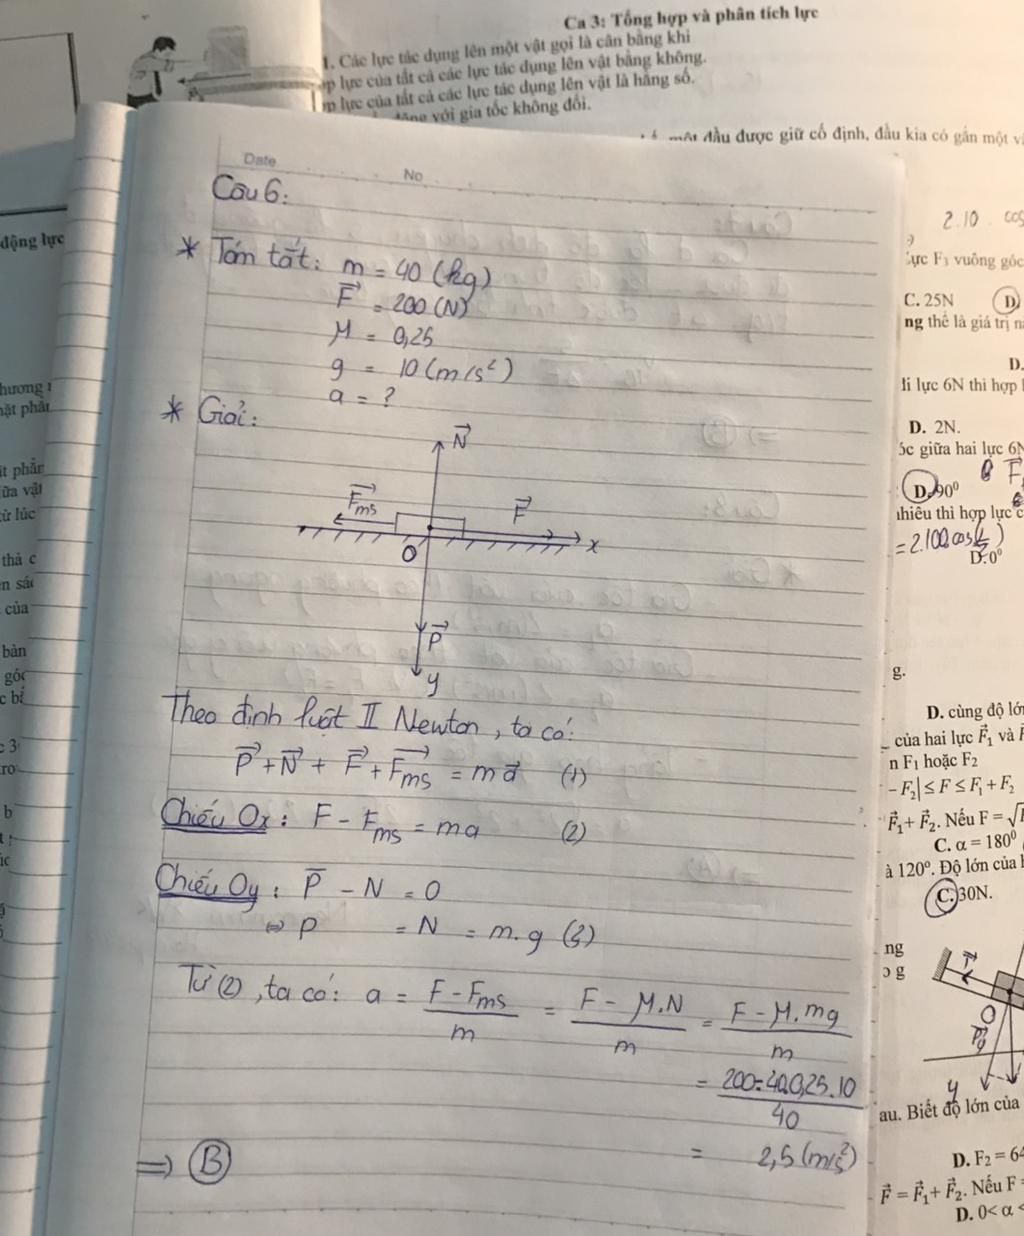 Ca 3: Tổng hợp và phân tích lực
1. Các lực tác dụng lên một vật gọi là cân bằng khi
ợp lực của tất cả các lực tác dụng lên vật bằng không.
ợp lực của tất cả các lực tác dụng lên vật là hằng số.
với gia tốc không đổi.
một đầu được giữ cố định, đầu kia có gắn một
Date
No
Câu 6:
* Tóm tắt: m = 40 (kg)
F⃗ = 200 (N)
μ = 0,25
g = 10 (m/s²)
a = ?
* Giải:
N⃗
F⃗ms
F⃗
O
x
P⃗
y
Theo định luật II Newton, ta có:
P⃗ + N⃗ + F⃗ + F⃗ms = ma⃗ (1)
Chiếu Ox: F - Fms = ma (2)
Chiếu Oy: P - N = 0
⇔ P = N = m.g (3)
Từ (2), ta có: a = (F - Fms)/m = (F - μ.N)/m = (F - μ.mg)/m
= (200-40.0,25.10)/40
= 2,5 (m/s²)
⇒ B
động lực
hương
ặt phẳn
ữa vật
từ lúc
thả c
của
bàn
góc
2.10 . cos
lực F₃ vuông góc
C. 25N D
ng thể là giá trị
D.
li lực 6N thì hợp
D. 2N.
óc giữa hai lực 6N
D. 90⁰
nhiêu thì hợp lực c
D. 0⁰
g.
D. cùng độ lớ
của hai lực F⃗₁ và
n F₁ hoặc F₂
- F₂| ≤ F ≤ F₁ + F₂
F⃗₁ + F⃗₂. Nếu F = √
C. α = 180⁰
à 120⁰. Độ lớn của
C. 30N.
ng
T⃗
O
y
au. Biết độ lớn của
D. F₂ = 64
F⃗ = F⃗₁ + F⃗₂. Nếu F =
D. 0 < α <